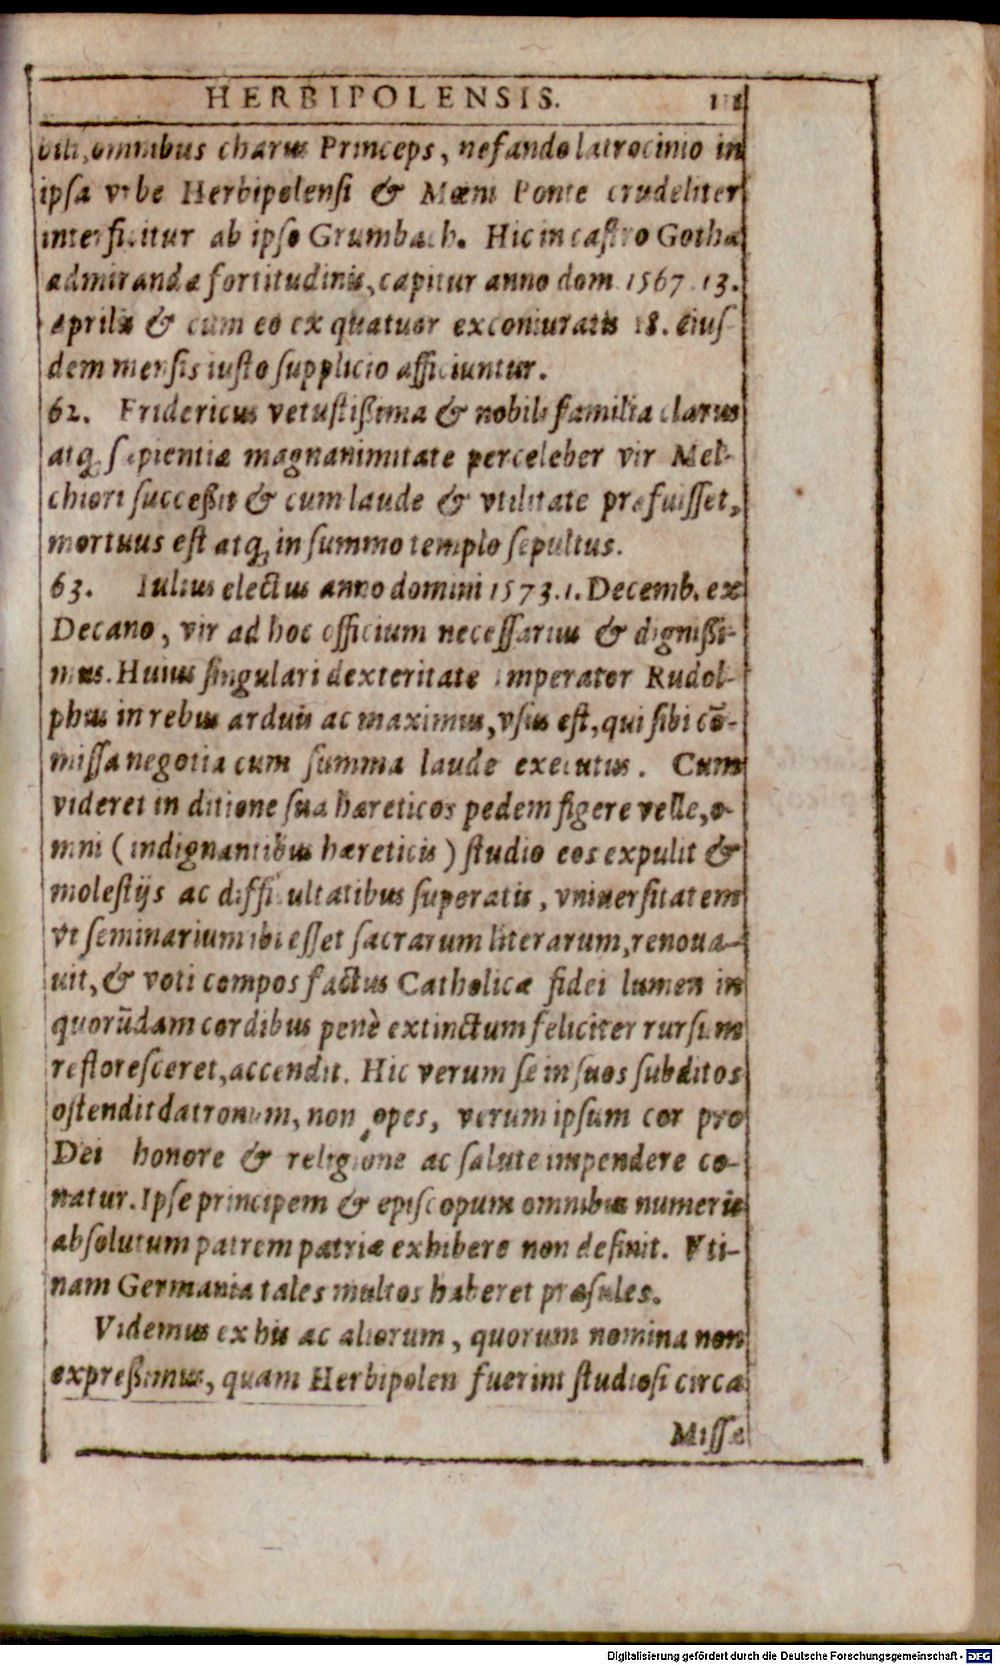 HERBIPOLENSIS.
omnibus charus Princeps, nefando latrocinio in
ipsa vrbe Herbipolensi & Mœni Ponte crudeliter
interficitur ab ipso Grumbach. Hic in castro Gotha
admirandæ fortitudinis, capitur anno dom. 1567 13.
Aprilis & cum eo ex quatuor exconiuratis 18. eius-
dem mensis iusto supplicio afficiuntur.
62. Fridericus vetustißima & nobili familia clarus
atq; sapientiæ magnanimitate perceleber vir Mel-
chiori succeßit & cum laude & vtilitate præfuisset,
mortuus est atq; in summo templo sepultus.
63. Iulius electus anno domini 1573. 1. Decemb. ex
Decano, vir ad hoc officium necessarius & dignißi-
mus. Huius singulari dexteritate Imperator Rudol-
phus in rebus arduis ac maximis, vsus est, qui sibi cō-
missa negotia cum summa laude executus. Cum
videret in ditione sua hæreticos pedem figere velle, o-
mni (indignantibus hæreticis) studio eos expulit &
molestijs ac difficultatibus superatis, vniuersitatem
vt seminarium ibi esset sacrarum literarum, renoua-
uit, & voti compos factus Catholicæ fidei lumen in
quorūdam cordibus penè extinctum feliciter rursum
refloresceret, accendit. Hic verum se in suos subditos
ostendit datronum, non opes, verum ipsum cor pro
Dei honore & religione ac salute impendere co-
natur. Ipse principem & episcopum omnibus numeris
absolutum patrem patriæ exhibere non definit. Vti-
nam Germania tales multos haberet præsules.
Videmus ex his ac aliorum, quorum nomina non
expreßimus, quam Herbipolen fuerint studiosi circa
Missæ
Digitalisierung gefördert durch die Deutsche Forschungsgemeinschaft - DFG